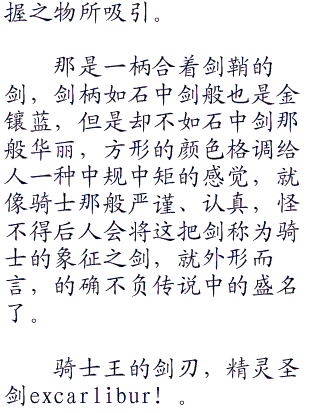 握之物所吸引。
那是一柄合着剑鞘的
剑，剑柄如石中剑般也是金
镶蓝，但是却不如石中剑那
般华丽，方形的颜色格调给
人一种中规中矩的感觉，就
像骑士那般严谨、认真，怪
不得后人会将这把剑称为骑
士的象征之剑，就外形而
言，的确不负传说中的盛名
了。
骑士王的剑刃，精灵圣
剑excarlibur！。